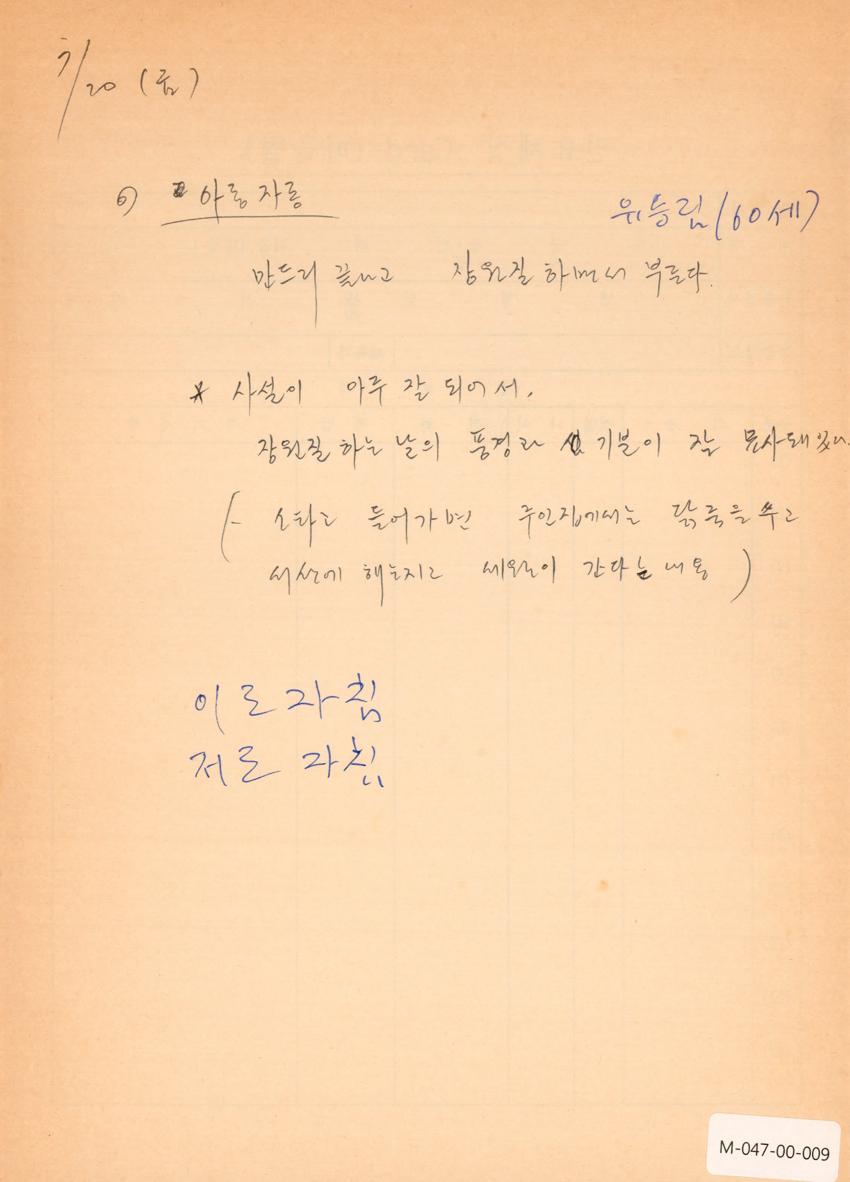 7/20 (금)
6) 아롱자롱
위등림(60세)
만드리 끝내고 장원질 하면서 부른다.
* 사설이 아주 잘 되어서,
장원질 하는 날의 풍경과 기분이 잘 묘사돼 있다.
(- 소타고 들어가면 주인집에서는 닭죽을 쑤고
서산에 해는지고 세월이 간다는 내용)
이로자침
저로자침
M-047-00-009